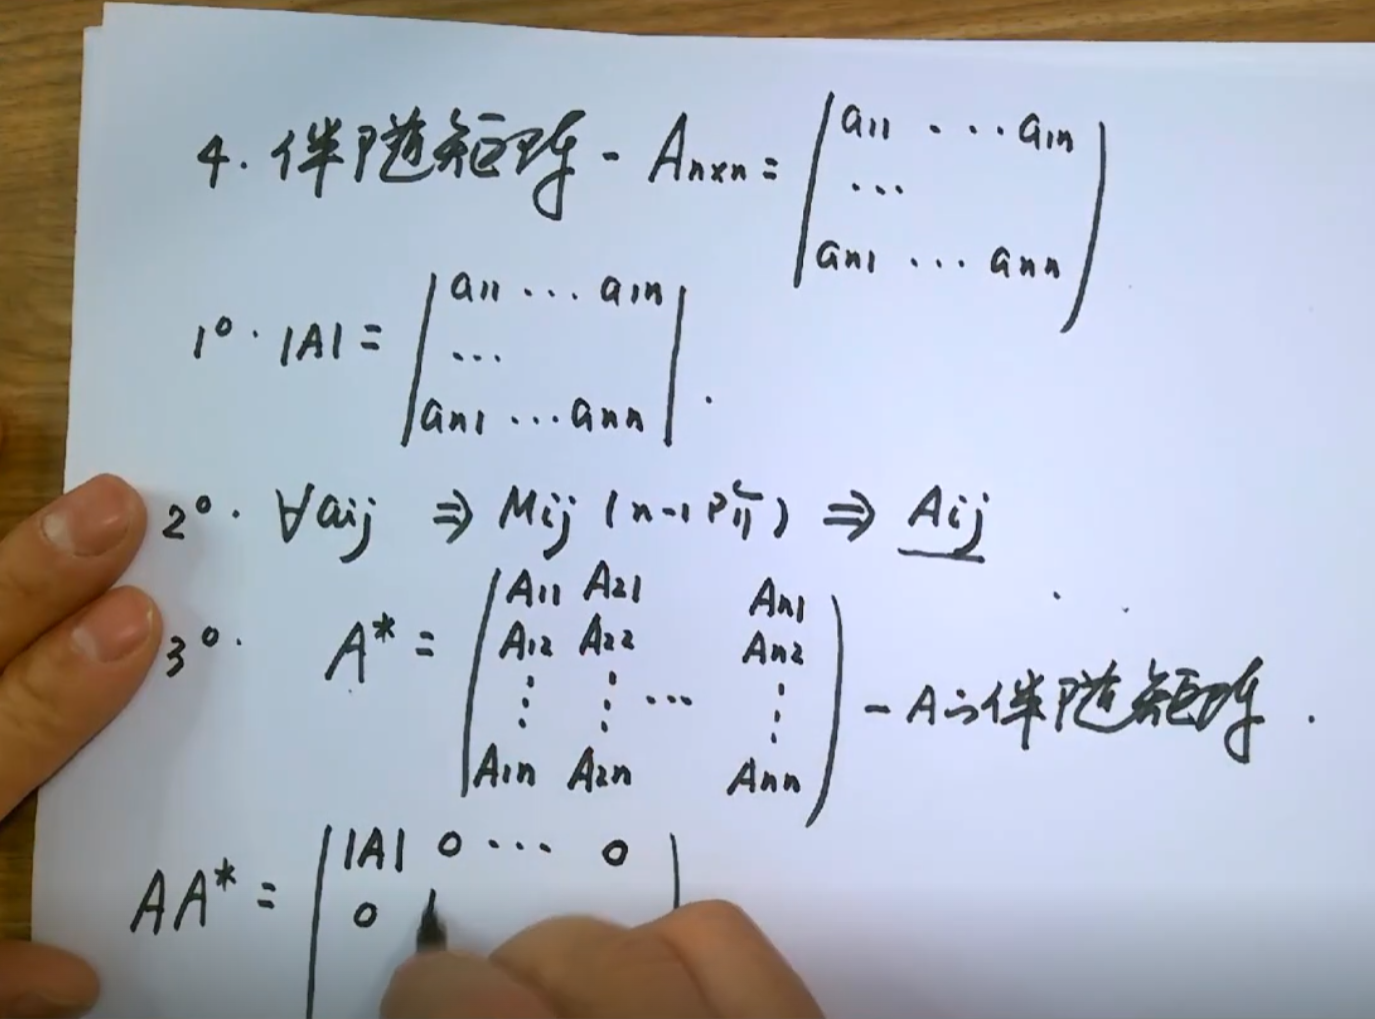 4. 伴随矩阵 - Anxn = (a11 ... a1n
...
an1 ... ann)
1°. |A| = |a11 ... a1n
...
an1 ... ann|.
2°. ∀aij ⇒ Mij (n-1阶) ⇒ Aij
3°. A* = (A11 A21 An1
A12 A22 An2
⋮ ⋮ ... ⋮
A1n A2n Ann) - A的伴随矩阵.
AA* = (|A| 0 ... 0
0